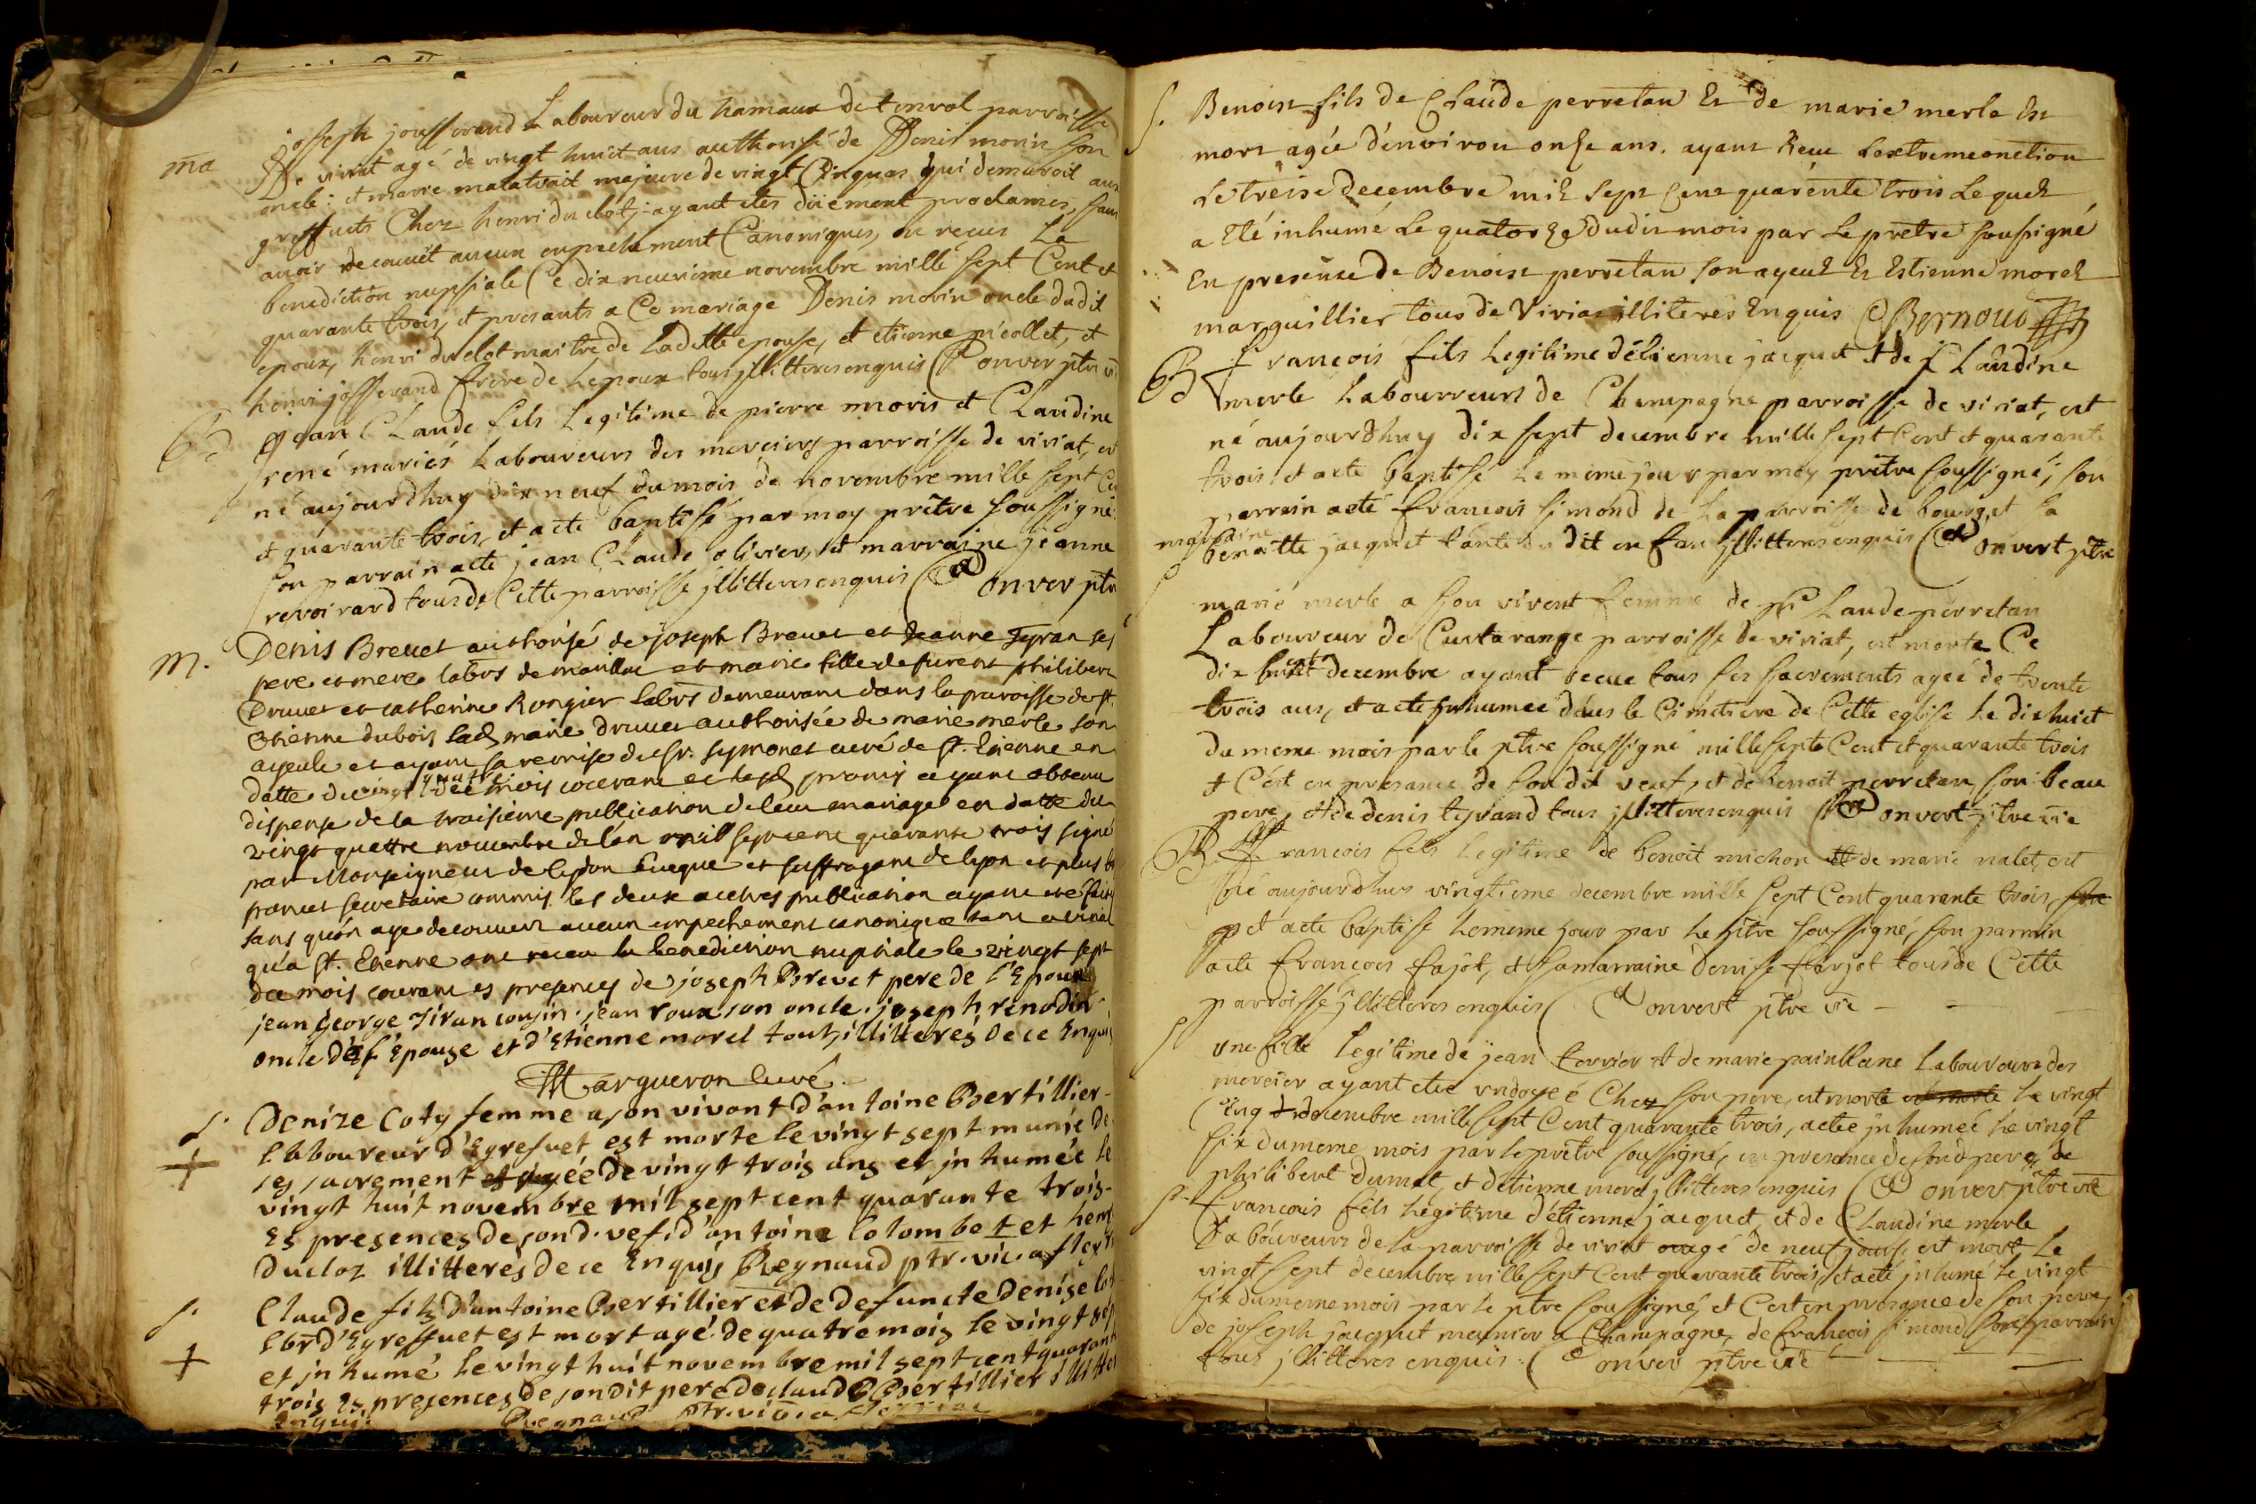 ma
joseph jousserand Laboureur du hamaux de tonvol parroisse
De viriat agé de vingt huit ans authorisé de Denis morin son
oncle: et marie malatrait majeure de vingt Cinq ans qui demuroit aux
greffets Chez henri du clot; ayant etes düement proclamés, sans
avoir decouvert aucun empechement Canoniques, on reçus La
benediction nupsiale Ce dix neuvieme novembre mille sept Cent et
quarante trois, et presants a Ce mariage Denis morin oncle dudit
epoux, henri du clot maitre de Laditte epouse, et etienne picollet, et
henri josserand frere de Lepoux tous jllitteres enquis Convert ptre
B
jean Claude fils Legitime de pierre moris et Claudine
rené mariés Laboureurs des merciers parroisse de viriat, est
né aujourdhuy dix neuf du mois de novembre mille sept Cent
et quarante trois, et a ete baptisé par moy prêtre soussigné:
son parrain a ete jean Claude olivier, et marraine jeanne
revoirard tous de Cette parroisse jllitteres enquis Convert ptre
m.
Denis Brevet authorisé de joseph Brevet et Jeanne Tyran ses
pere et mere labrs de et marie fille de furent philibert
Druet et catherine Rongier labrs demeurant dans la paroisse de st.
Etienne dubois lad marie Druet authorisée de marie merle son
ayeule et ayant sa remise du sr. symonet curé de st. Etienne en
datte du vingt quatre du mois courant et lesd promis ayant obtenu
dispense de la troisieme publication de leur mariage en datte du
vingt quattre novembre de lan mil sept cent quarante trois signé
par Monseigneur de evêque et suffragant de lyon et plus bas
secretaire commis les deux autres publication ayant ete faites
sans qu'on aye decouvert aucun empechement canonique tant a viriat
qu'a st. Etienne ont receu la benediction nuptiale le vingt sept
du mois courant es presences de joseph Brevet pere de l'Epoux
jean george Tiran cousin. jean roux son oncle. joseph renodin
oncle de l'Epouse et d'Etienne morel tout illitteres de ce Enquis
Margueron curé
s.
Denize Coty femme a son vivant d'antoine Bertillier
labboureur d'Egrefuet est morte le vingt sept munie de
ses sacrement et agée de vingt trois ans et jnhumée le
vingt huit novembre mil sept cent quarante trois
Es presences de sond. vef. d'antoine Colombet et henri
Ducloz illitteres de ce Enquis Regnaud ptr. vic.
s.
Claude fils d'antoine Bertillier et de defuncte Denise Coty
lbr d'Egreffuet est mort agé de quatre mois le vingt sept
et jnhumé le vingt huit novembre mil sept cent quarante
trois Es presences de son dit pere de claude Bertillier illitteres
Enquis Regnaud ptr. vic.
s.
Benoist fils de Claude perretan Et de marie merle Est
mort agée d'environ onse ans. ayant Receu Lextremeonction
Le treise Decembre mil sept Cent quarente trois Le quel
a Eté inhumé Le quatorze Dudit mois par Le prêtre soussigné
En presence de Benoist perretan son ayeul Et Estienne morel
marguillier tous de Viriat illiteres Enquis Bernoud
B
francois fils Legitime détienne jacquet et de Claudine
merle Labourreurs de Champagne parroisse de viriat, est
né aujourdhuy dix sept decembre mille sept Cent et quarante
trois et a ete baptisé Le meme jour par moy prêtre soussigné; son
parrain a eté francois simond de La parroisse de bourg, et sa
marraine
benoitte jacquet tante du dit enfan jllitteres enquis Convert ptre
S
marie merle a son vivent femme de Claude perretan
Laboureur de Curtarange parroisse de viriat, est morte Ce
dix huit decembre ayant receue tous ses sacrements agée de trente
trois ans, et a ete jnhumée dans le Cimetiere de Cette eglise Le dix huit
du meme mois par le ptre soussigné mille septe Cent et quarante trois
et C'est en presance de son dit veuf, et de benoit perretan son beau
pere, et de denis tyrand tous jllitteres enquis Convert ptre vic
B.
francois fils Legitime de benoit michon et de marie nalet, est
né aujourdhuy vingtieme decembre mille sept Cent quarante trois,
et a ete baptisé Lememe jour par Le ptre soussigné, son parrain
a ete francois fajot, et sa marraine denise farjot tous de Cette
parroisse jllitteres enquis Convert ptre vic
s
une fille Legitime de jean terrier et de marie painblanc Laboureurs des
mercier ayant etée undoyeé Chez son pere, est morte Le vingt
Cinq decembre mille sept Cent quarante trois, a etée jnhumeé Le vingt
six du meme mois par Le prêtre soussigné, en presence de sond pere, de
philibert dumat, et detienne morel jllitteres enquis Convert ptre vic
s.
francois fils Legitime d'étienne jacquet, et de Claudine merle
Laboureurs de la parroisse de viriat agé de neuf jours, est mort Le
vingt sept decembre mille sept Cent quarante trois, et a eté jnhumé Le vingt
six du meme mois par Le ptre soussigné, et C'est en presance de son pere,
de joseph jacquet meunier a Champagne, de francois simond son parrain
tous jllitteres enquis: Convert ptre vic